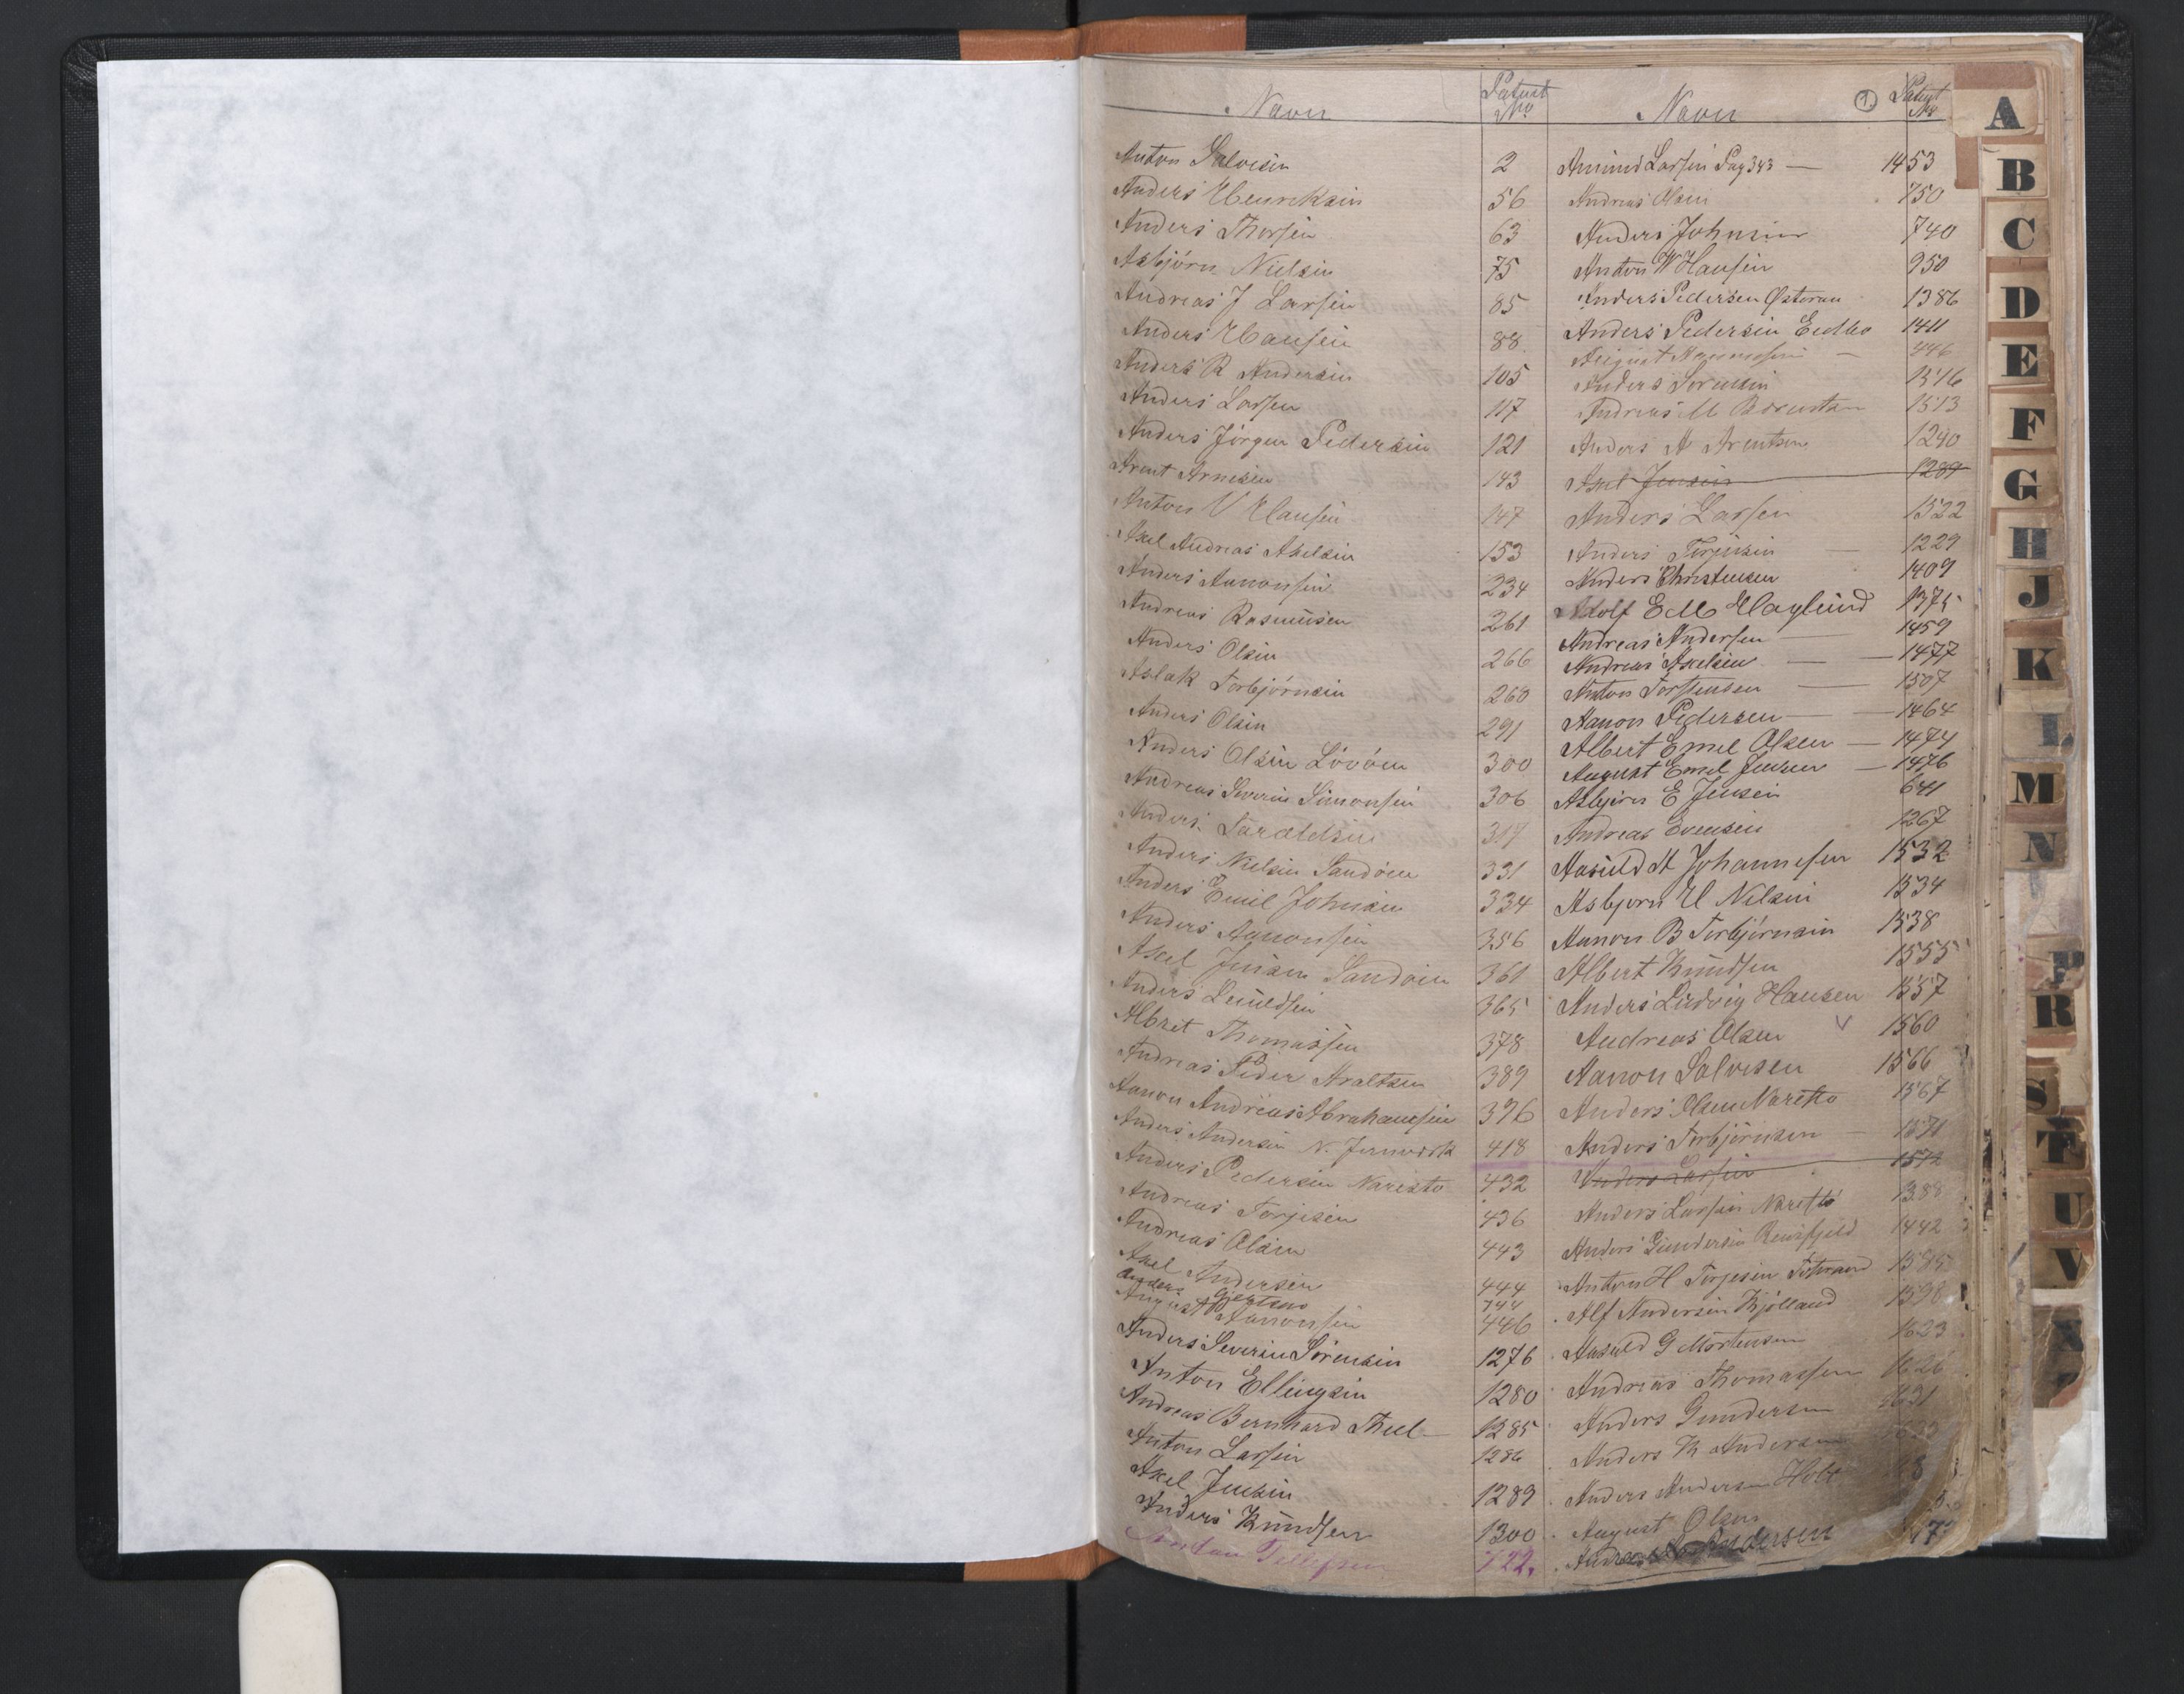 Navn Patent No
Anton Salvesen 2
Anders Henriksen 56
Anders Thorsen 63
Asbjörn Nielsen 75
Andreas J Larsen 85
Anders Hansen 88
Anders R Andersen 105
Anders Larsen 117
Anders Jörgen Pedersen 121
Arent Arnesen 143
Anton V Hansen 147
Axel Andreas Axelsen 153
Anders Aanonsen 234
Andreas Rasmussen 261
Anders Olsen 266
Aslak Torbjörnsen 260
Anders Olsen 291
Anders Olsen Lövöen 300
Andreas Severin Simonsen 306
Anders Taraldsen 317
Anders Nielsen Sandöen 331
Anders Emil Johnsen 334
Anders Aanonsen 356
Axel Jensen Sandöen 361
Anders 365
Albret Thomassen 378
Andreas Peder Araltsen 389
Aanon Andreas Abrahamsen 396
Anders Andersen N. 418
Anders Pedersen Naresto 432
Andreas Torjesen 436
Andreas Olsen 443
Axel Andersen 444
Anders 744
August Aanonsen 446
Anders Severin Sörensen 1276
Anton Ellingsen 1280
Andreas Bernhard Theel 1285
Anton Larsen 1286
Axel Jensen 1289
Anders Knudsen 1300
Tellefsen 722.
Navn 1. Patent No
Amund Larsen Pag 343 — 1453
Andreas Olsen 750
Anders Johnsen 740
Anton W Hansen 950
Anders Pedersen Østerau 1386
Anders Pedersen Eidbo 1411
August Aanonsen — 446
Anders Sörensen 1516
Andreas M 1513
Anders A Arentsen 1240
Axel Jensen 1289
Anders Larsen 1522
Anders Torjesen — 1229
Anders Christensen 1409
Adolf E M Haglund 1375
Andreas Andersen — 1459
Andreas Axelsen — 1477
Anton Torstensen — 1507
Aanon Pedersen — 1464
Albert Emil Olsen — 1474
August Emil Jensen — 1476
Asbjörn E Jensen 641
Andreas Evensen 1267
Aasuld A Johannesen 1532
Asbjorn H Nilsen 1534
Aanon B Torbjörnsen 1538
Albert Knudsen 1555
Anders Ludvig Hansen 1557
Andreas Olsen 1560
Aanon Salvesen 1566
Anders Olsen Naresto 1567
Anders Torbjörnsen 1571
Anders Larsen 1572
Anders Larsen Narestö 1388
Anders Gundersen 1442
Anton H Torjesen 1585
Alf Andersen Kjölland 1598
Aasuld G Mortensen 1623
Andreas Thomassen 1626
Anders Gundersen 1631
Anders K Andersen
Anders Andersen Holt
August Olsen
Andreas Andersen
A
B
C
D
E
F
G
H
J
K
L
M
N
P
R
S
T
U
V